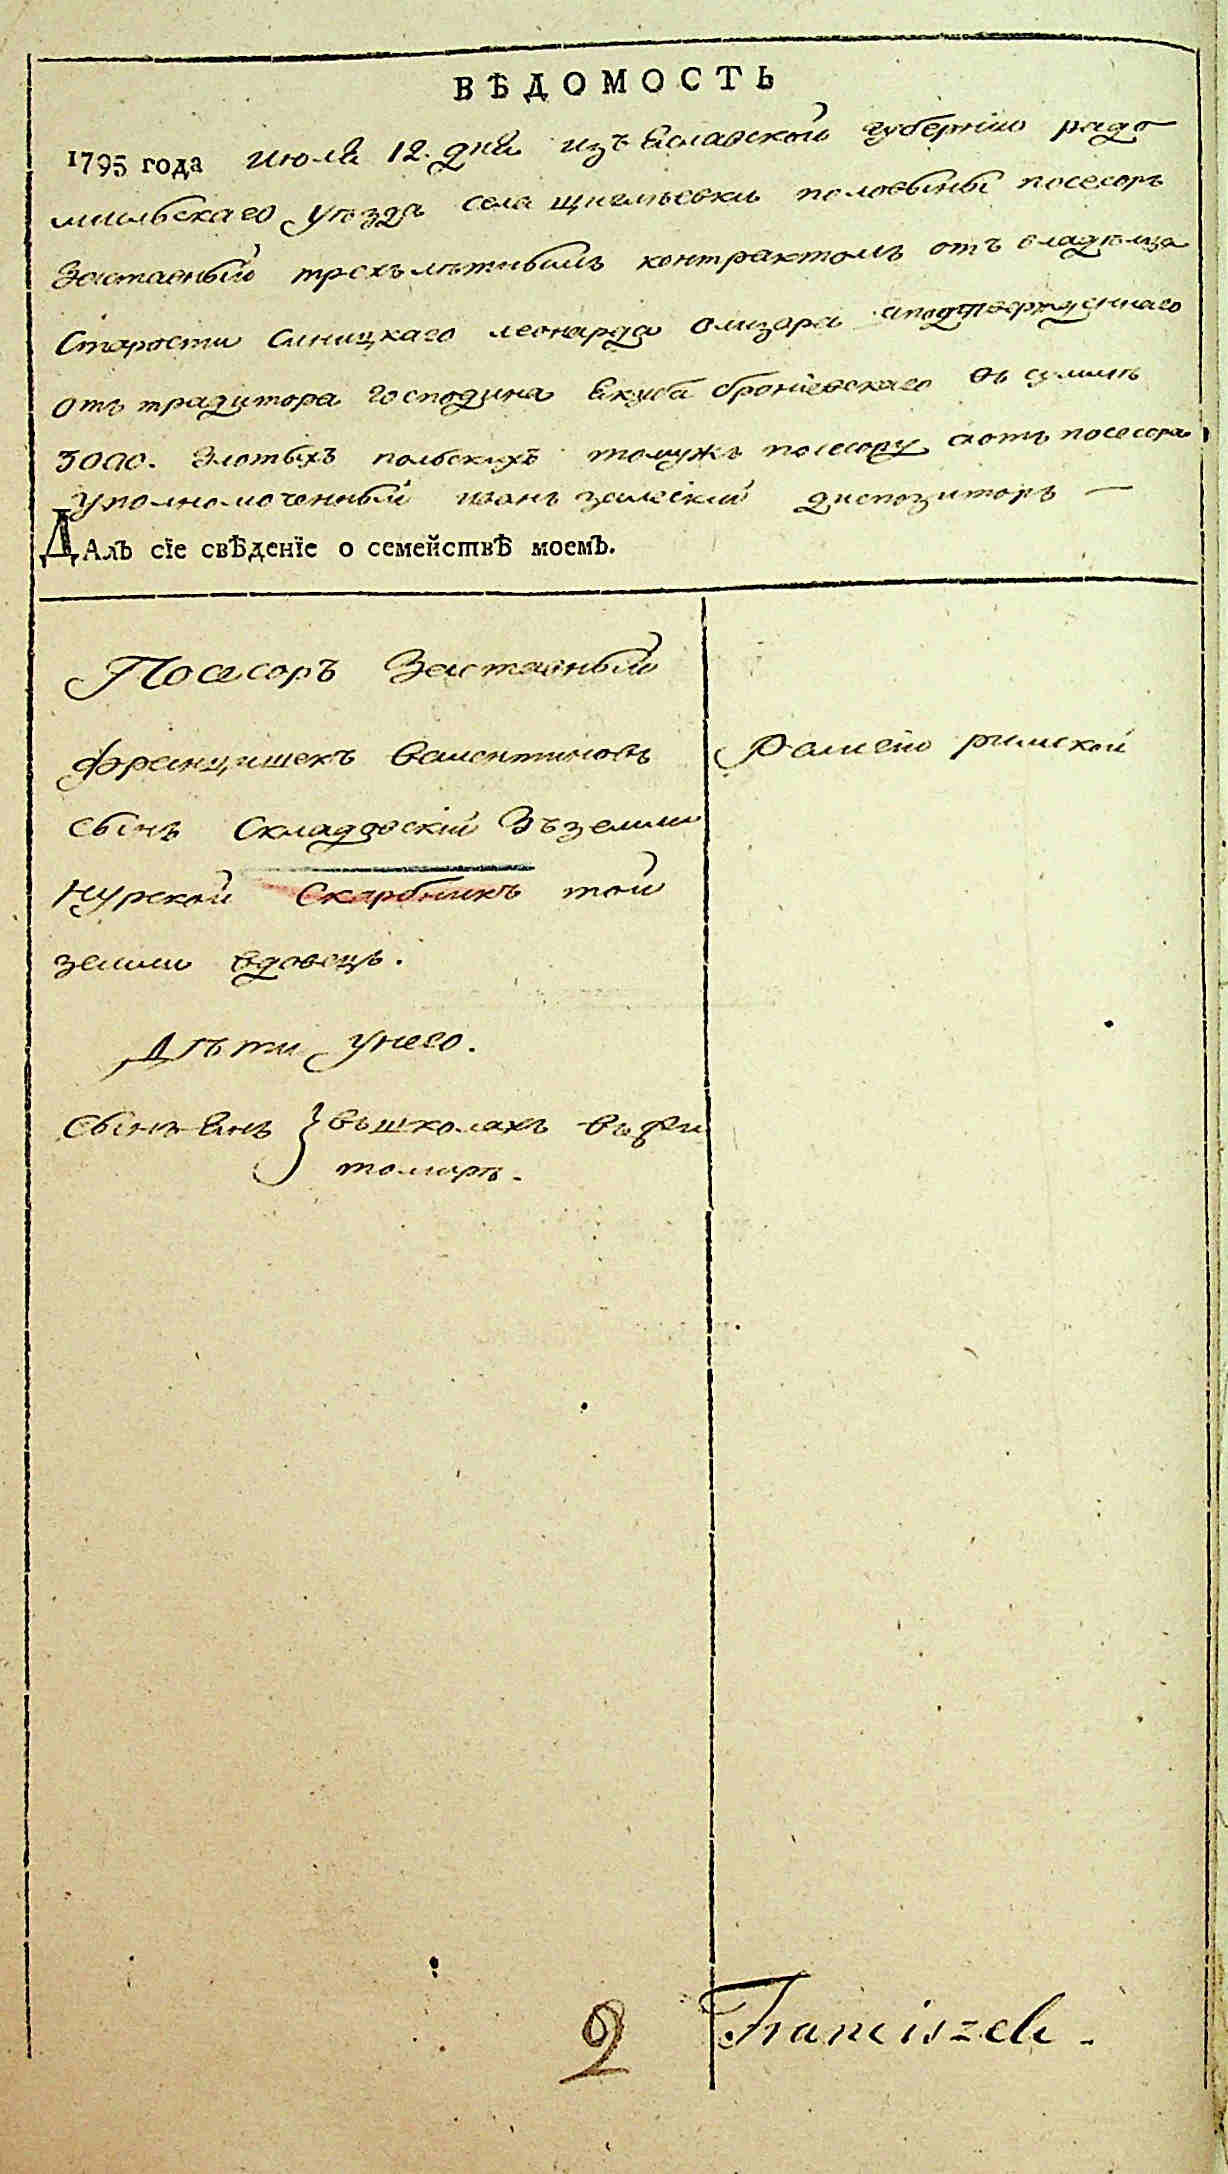 ВѢДОМОСТЬ
1795 года июля 12. дня изъ Еславской губерніи радо
мыльскаго уѣзда села Щигліевки половыны посесоръ
Заставный трехълѣтнымъ контрактомъ отъ владѣлца
Старости Синицкаго леонарда Олизара
отъ традитора господина Екуба броніевскаго въ суммѣ
3000. Злотыхъ польскихъ томужъ посесору аотъ посесора
уполномоченный иванъ залескій диспозиторъ —
Далъ сіе свѣденіе о семействѣ моемъ.
Посесоръ Заставный
францишекъ валентиновъ
сынъ Складовскій Зъземли
Нурской Скарбникъ той
земли вдовецъ.
Дѣти унего.
Сынъ Янъ } въшколахъ въжи
томирѣ.
Рэлиеіи римской
2 Franciszek -